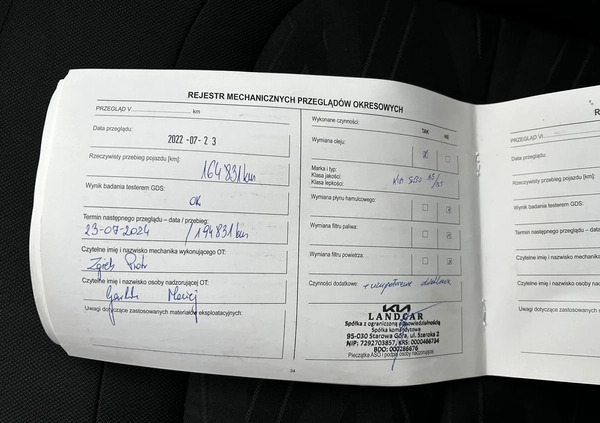 REJESTR MECHANICZNYCH PRZEGLĄDÓW OKRESOWYCH
PRZEGLĄD V. km
Data przeglądu:
2022 -07- 2 3
Rzeczywisty przebieg pojazdu [km]:
164 831 km
Wynik badania testerem GDS:
OK
Termin następnego przeglądu – data / przebieg:
23-07-2024 / 194831 km
Czytelne imię i nazwisko mechanika wykonującego OT:
Piotr
Czytelne imię i nazwisko osoby nadzorującej OT:
Maciej
Uwagi dotyczące zastosowanych materiałów eksploatacyjnych:
34
Wykonane czynności:
TAK NIE
Wymiana oleju:
Marka i typ:
Klasa jakości:
Klasa lepkości:
Wymiana płynu hamulcowego:
Wymiana filtru paliwa:
Wymiana filtru powietrza:
Czynności dodatkowe:
KIA
LANDCAR
Spółka z ograniczoną odpowiedzialnością
Spółka komandytowa
95-030 Starowa Góra, ul. Szeroka 2
NIP: 7292703857, KRS: 0000466734
BDO: 000286676
Pieczątka ASO i podpis osoby nadzorującej
R
PRZEGLĄD VI.
Data przeglądu:
Rzeczywisty przebieg pojazdu [km]:
Wynik badania testerem GDS:
Termin następnego przeglądu –
Czytelne imię i nazwisko mecha
Czytelne imię i nazwisko osoby
Uwagi dotyczące zastosowany